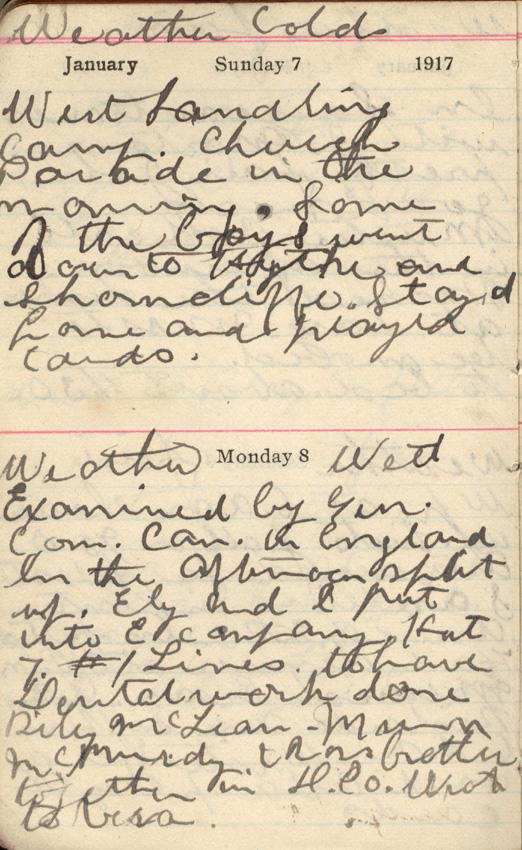 Weather Cold
January Sunday 7 1917
West Sandling
Camp. Church
Parade in the
morning. Some
of the Boys went
down to Hythe and
Shorncliffe. Stayd
home and playd
cards.
Weather Monday 8 Wett
Examined by Gen.
Com. Can. in England
In the Afternoon split
up. Ely and I put
into E company Hut
7. #1 Lines. to have
Dental work done
Bily McLean - Mann
McMurdy & Ross
together in H.Co. Wrote
to